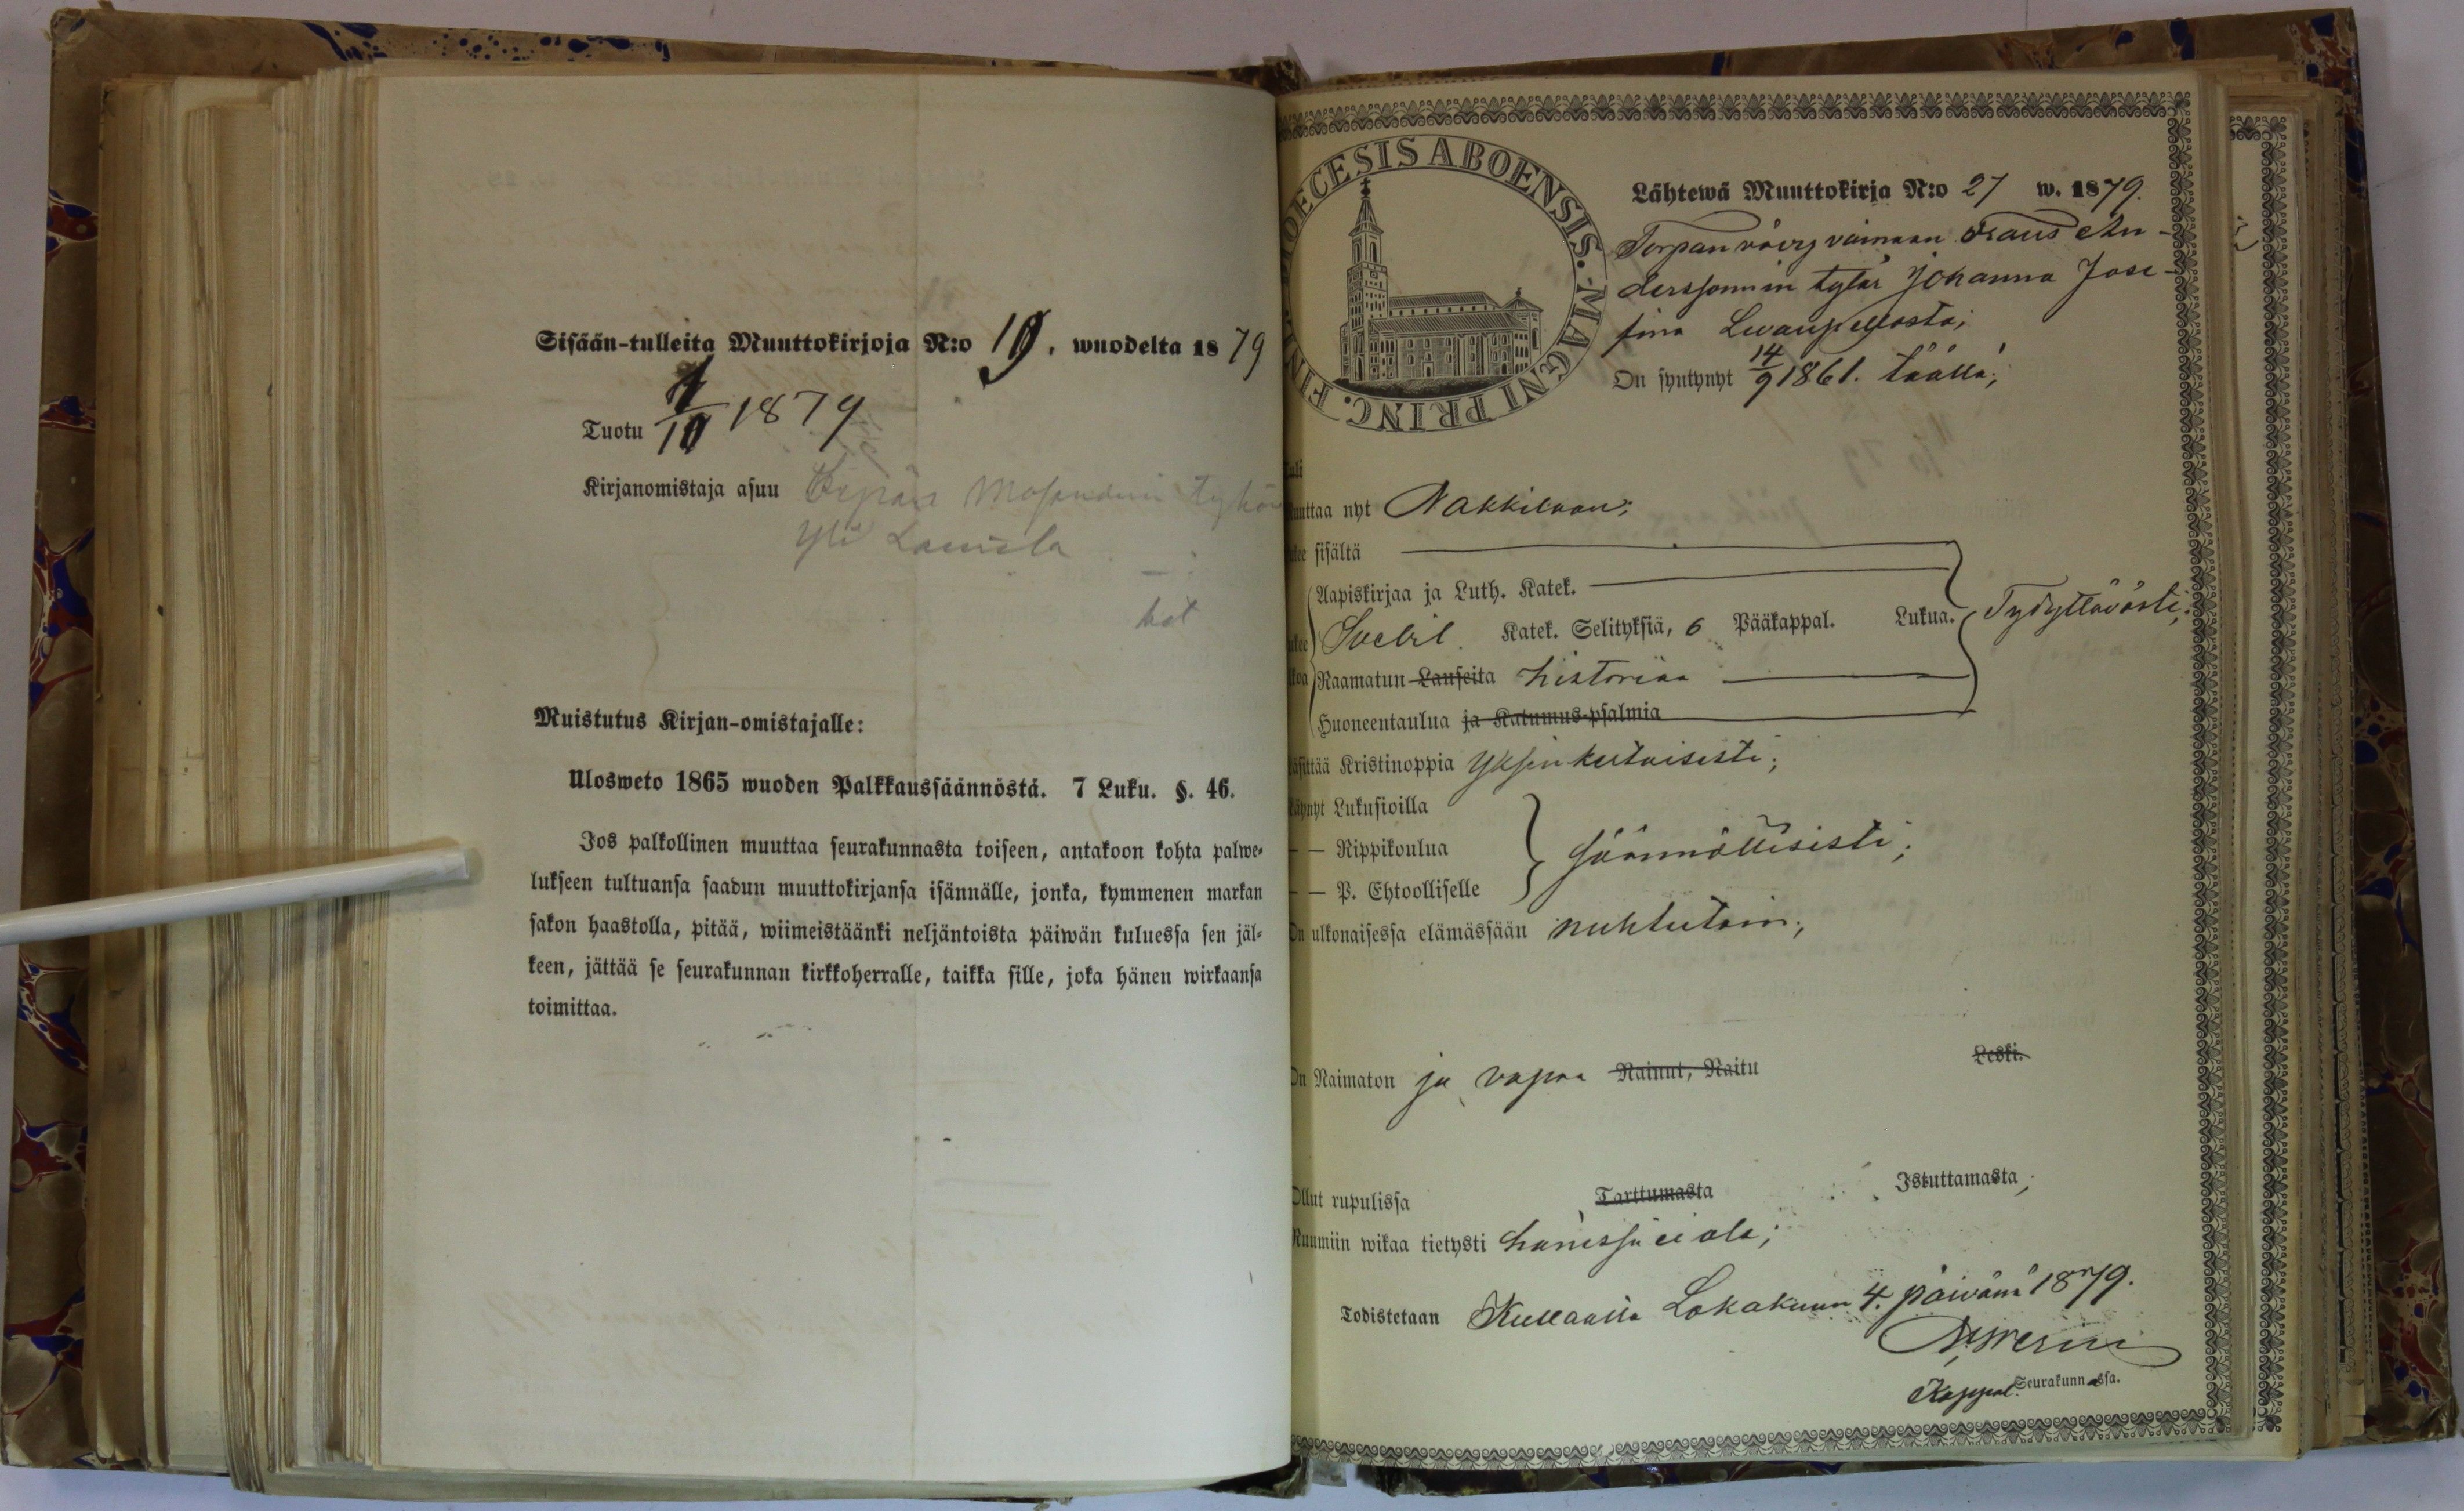 Sisään-tulleita Muuttokirjoja N:o 19. wuodelta 1879
Tuotu 4/10 1879
Kirjanomistaja asuu
Yli
Muistutus Kirjan-omistajalle:
Ulosweto 1865 wuoden Palkkaussäännöstä. 7 Luku. §. 46.
Jos palkollinen muuttaa seurakunnasta toiseen, antakoon kohta palwe-
lukseen tultuansa saadun muuttokirjansa isännälle, jonka, kymmenen markan
sakon haastolla, pitää, wiimeistäänki neljäntoista päiwän kuluessa sen jäl-
keen, jättää se seurakunnan kirkkoherralle, taikka sille, joka hänen wirkaansa
toimittaa.
DIOECESIS ABOENSIS. MAGNI PRINC. FINL.
Lähtewä Muuttokirja N:o 27 w. 1879.
Torpan Frans An-
derssonnin tytär Johanna Jose-
fina
On syntynyt 14/9 1861. täällä;
uuttaa nyt Nakkilaan;
sisältä
Aapiskirjaa ja Luth. Katek.
Svebil. Katek. Selityksiä, 6 Pääkappal. Lukua. Tydyttävästi;
Raamatun Lauseita historiaa
Huoneentaulua ja Katumus-psalmia
Käsittää Kristinoppia yksinkertaisesti;
Käynyt Lukusioilla
— — Rippikoulua säännöllisesti;
— — P. Ehtoolliselle
On ulkonaisessa elämässään nuhteetoin;
On Naimaton ja vapaa Nainut, Naitu Leski.
Ollut rupulissa Tarttumasta Istuttamasta;
Ruumiin wikaa tietysti hänessä ei ole;
Todistetaan Kullaalla Lokakuun 4. päivänä 1879.
Kappal. Seurakunnassa.